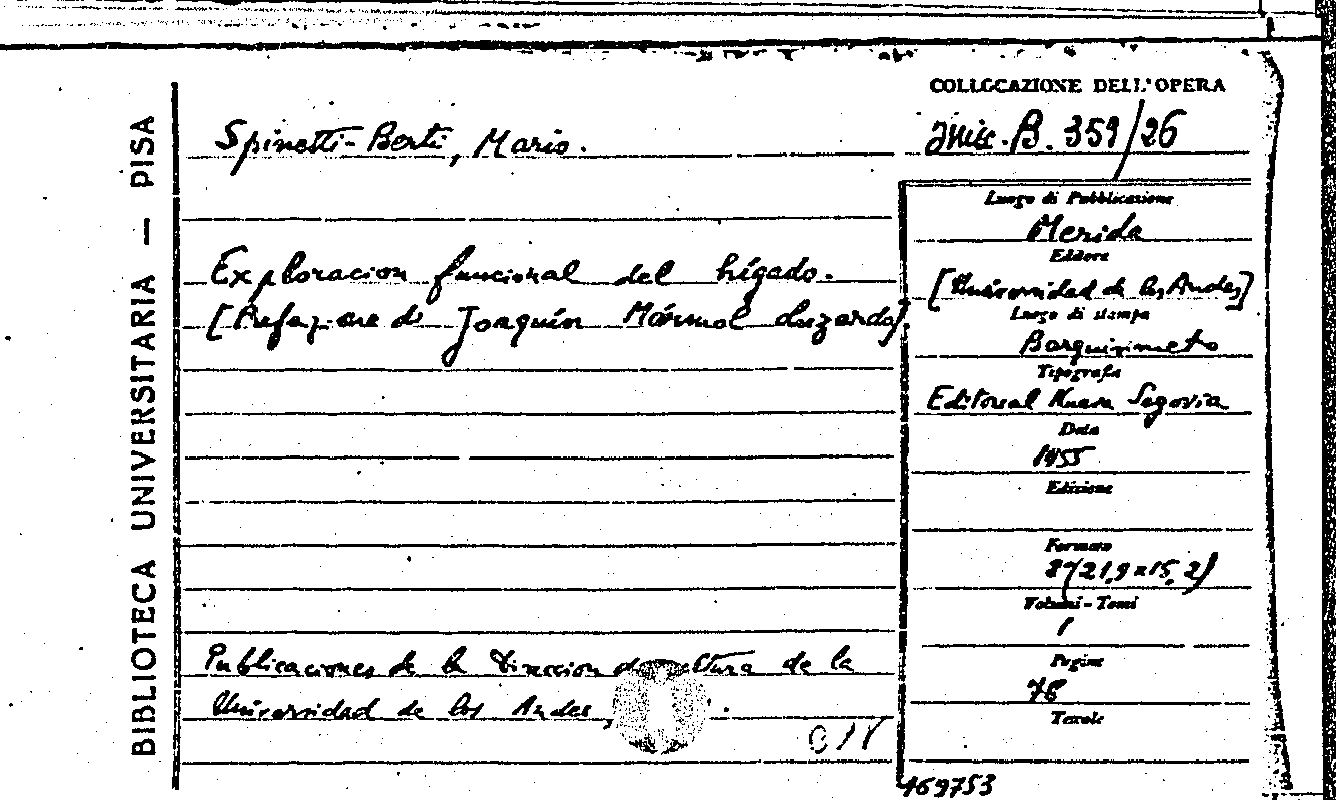 BIBLIOTECA UNIVERSITARIA — PISA
COLLOCAZIONE DELL'OPERA
Misc. B. 359/26
Spinetti-Berti, Mario.
Exploracion funcional del hígado.
[Prefazione di Joaquín Mármol Luzardo].
Publicaciones de la Direccion de la
Universidad de los Andes,
Luogo di Pubblicazione
Merida
Editore
[Universidad de los Andes]
Luogo di stampa
Barquisimeto
Tipografia
Editorial Nueva Segovia
Data
1955
Edizione
Formato
8°(21,9x15,2)
Volumi - Tomi
1
Pagine
78
Tavole
469753